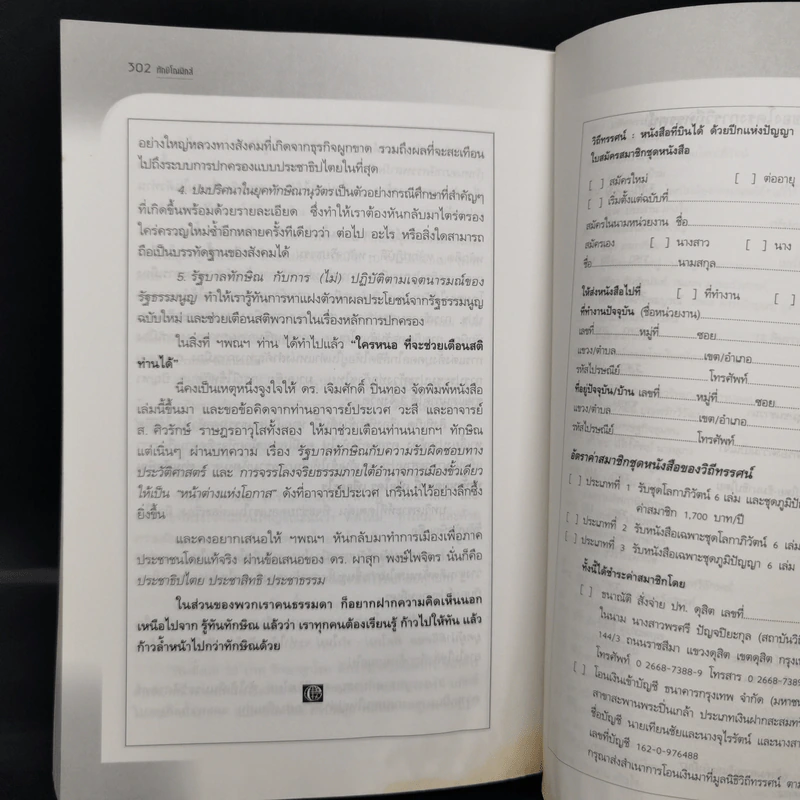 302 ทักษิโณมิกส์
อย่างใหญ่หลวงทางสังคมที่เกิดจากธุรกิจผูกขาด รวมถึงผลที่จะสะเทือน
ไปถึงระบบการปกครองแบบประชาธิปไตยในที่สุด
4. ปมปริศนาในยุคทักษิณานุวัตรเป็นตัวอย่างกรณีศึกษาที่สำคัญๆ
ที่เกิดขึ้นพร้อมด้วยรายละเอียด ซึ่งทำให้เราต้องหันกลับมาไตร่ตรอง
ใคร่ครวญใหม่ซ้ำอีกหลายครั้งทีเดียวว่า ต่อไป อะไร หรือสิ่งใดสามารถ
ถือเป็นบรรทัดฐานของสังคมได้
5. รัฐบาลทักษิณ กับการ (ไม่) ปฏิบัติตามเจตนารมณ์ของ
รัฐธรรมนูญ ทำให้เรารู้ทันการหาแฝงตัวหาผลประโยชน์จากรัฐธรรมนูญ
ฉบับใหม่ และช่วยเตือนสติพวกเราในเรื่องหลักการปกครอง
ในสิ่งที่ ฯพณฯ ท่าน ได้ทำไปแล้ว "ใครหนอ ที่จะช่วยเตือนสติ
ท่านได้"
นี่คงเป็นเหตุหนึ่งจูงใจให้ ดร. เจิมศักดิ์ ปิ่นทอง จัดพิมพ์หนังสือ
เล่มนี้ขึ้นมา และขอข้อคิดจากท่านอาจารย์ประเวศ วะสี และอาจารย์
ส. ศิวรักษ์ ราษฎรอาวุโสทั้งสอง ให้มาช่วยเตือนท่านนายกฯ ทักษิณ
แต่เนิ่นๆ ผ่านบทความ เรื่อง รัฐบาลทักษิณกับความรับผิดชอบทาง
ประวัติศาสตร์ และ การจรรโลงจริยธรรมภายใต้อำนาจการเมืองขั้วเดียว
ให้เป็น "หน้าต่างแห่งโอกาส" ดังที่อาจารย์ประเวศ เกริ่นนำไว้อย่างลึกซึ้ง
ยิ่งขึ้น
และคงอยากเสนอให้ ฯพณฯ หันกลับมาทำการเมืองเพื่อภาค
ประชาชนโดยแท้จริง ผ่านข้อเสนอของ ดร. ผาสุก พงษ์ไพจิตร นั่นก็คือ
ประชาธิปไตย ประชาสิทธิ ประชาธรรม
ในส่วนของพวกเราคนธรรมดา ก็อยากฝากความคิดเห็นนอก
เหนือไปจาก รู้ทันทักษิณ แล้วว่า เราทุกคนต้องเรียนรู้ ก้าวไปให้ทัน แล้ว
ก้าวล้ำหน้าไปกว่าทักษิณด้วย
วิถีทรรศน์ : หนังสือที่บินได้ ด้วยปีกแห่งปัญญา
ใบสมัครสมาชิกชุดหนังสือ
[ ] สมัครใหม่ [ ] ต่ออายุ
[ ] เริ่มตั้งแต่ฉบับที่
สมัครในนามหน่วยงาน ชื่อ
สมัครเอง [ ] นางสาว [ ] นาง
ชื่อ นามสกุล
ให้ส่งหนังสือไปที่ [ ] ที่ทำงาน [ ]
ที่ทำงานปัจจุบัน (ชื่อหน่วยงาน)
เลขที่ หมู่ที่ ซอย
แขวง/ตำบล เขต/อำเภอ
รหัสไปรษณีย์ โทรศัพท์
ที่อยู่ปัจจุบัน/บ้าน เลขที่ หมู่ที่ ซอย
แขวง/ตำบล เขต/อำเภอ
รหัสไปรษณีย์ โทรศัพท์
อัตราค่าสมาชิกชุดหนังสือของวิถีทรรศน์
[ ] ประเภทที่ 1 รับชุดโลกาภิวัตน์ 6 เล่ม และชุดภูมิปัญ
ค่าสมาชิก 1,700 บาท/ปี
[ ] ประเภทที่ 2 รับหนังสือเฉพาะชุดโลกาภิวัตน์ 6 เล่ม
[ ] ประเภทที่ 3 รับหนังสือเฉพาะชุดภูมิปัญญา 6 เล่ม
ทั้งนี้ได้ชำระค่าสมาชิกโดย
[ ] ธนาณัติ สั่งจ่าย ปท. ดุสิต เลขที่
ในนาม นางสาวพรศรี ปัญจปิยะกุล (สถาบันวิ
144/3 ถนนราชสีมา แขวงดุสิต เขตดุสิต กรุงเท
โทรศัพท์ 0 2668-7388-9 โทรสาร 0 2668-7389
[ ] โอนเงินเข้าบัญชี ธนาคารกรุงเทพ จำกัด (มหาช
สาขาสะพานพระปิ่นเกล้า ประเภทเงินฝากสะสมท
ชื่อบัญชี นายเทียนชัยและนางจุไรรัตน์ และนางส
เลขที่บัญชี 162-0-976488
กรุณาส่งสำเนาการโอนเงินมาที่มูลนิธิวิถีทรรศน์ ตาม